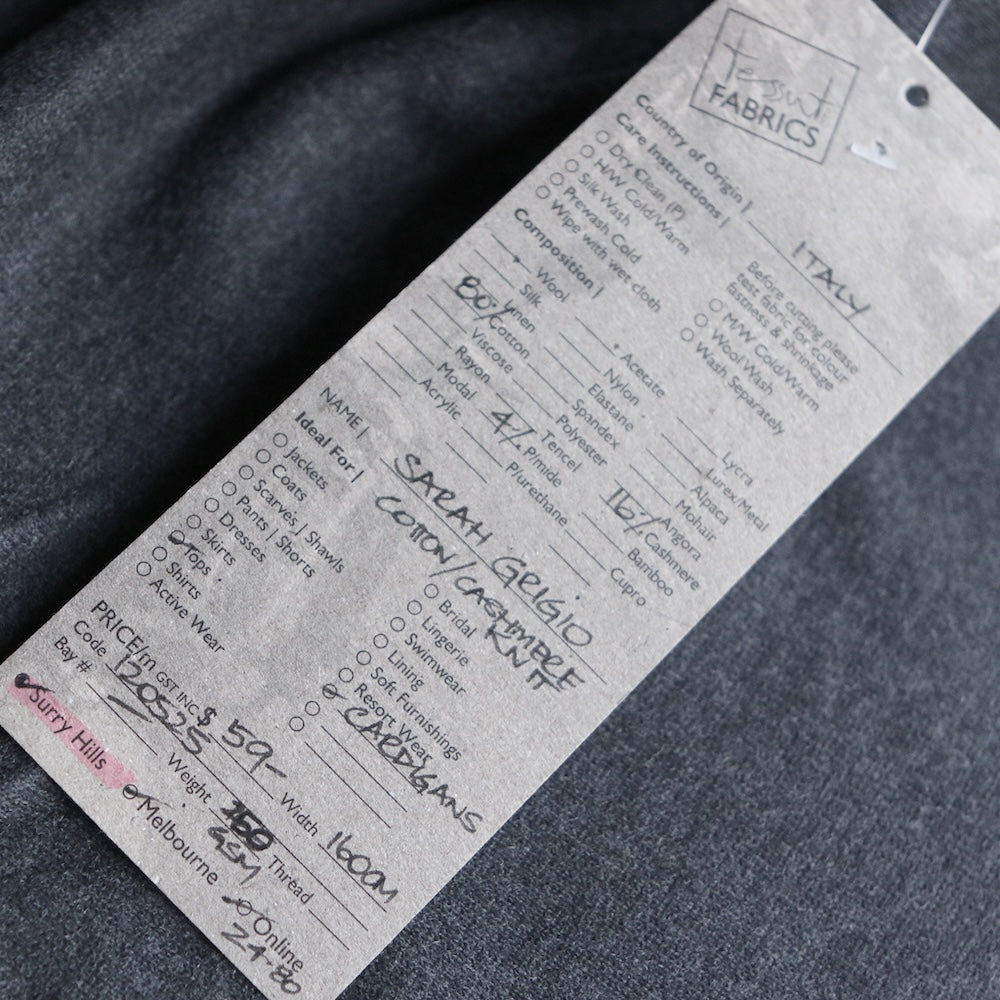 Tessuti
FABRICS
Country of Origin | ITALY
Care Instructions |
Dry Clean (P)
H/W Cold/Warm
Silk Wash
Prewash Cold
Wipe with wet cloth
Before cutting please
test fabric for colour
fastness & shrinkage
M/W Cold/Warm
Wool Wash
Wash Separately
Composition |
Wool
Silk
Linen
80% Cotton
Viscose
Rayon
Modal
Acrylic
Acetate
Nylon
Elastane
Spandex
Polyester
Tencel
4% P/mide
P/urethane
Lycra
Lurex/Metal
Alpaca
Mohair
Angora
16% Cashmere
Bamboo
Cupro
NAME | SARAH GRIGIO
COTTON/CASHMERE
KNIT
Ideal For |
Jackets
Coats
Scarves | Shawls
Pants | Shorts
Dresses
Skirts
Tops
Shirts
Active Wear
Bridal
Lingerie
Swimwear
Lining
Soft Furnishings
Resort Wear
CARDIGANS
PRICE/m GST INC $ 59-
Code 120525
Bay #
Width 160CM
Weight GSM
Thread
Surry Hills
Melbourne
Online